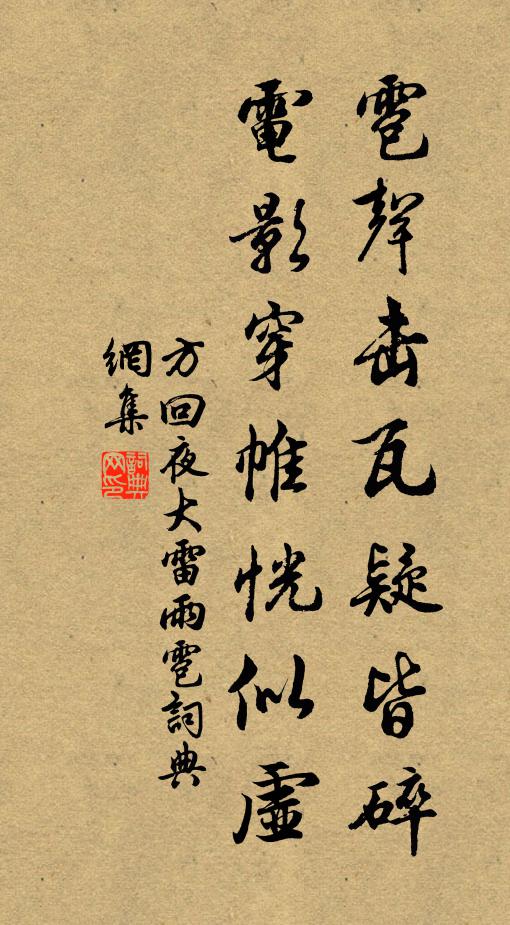 雹聲击瓦疑皆碎
電影穿帷恍似虛
方回夜大雷雨雹詞典
網集
詞典网印